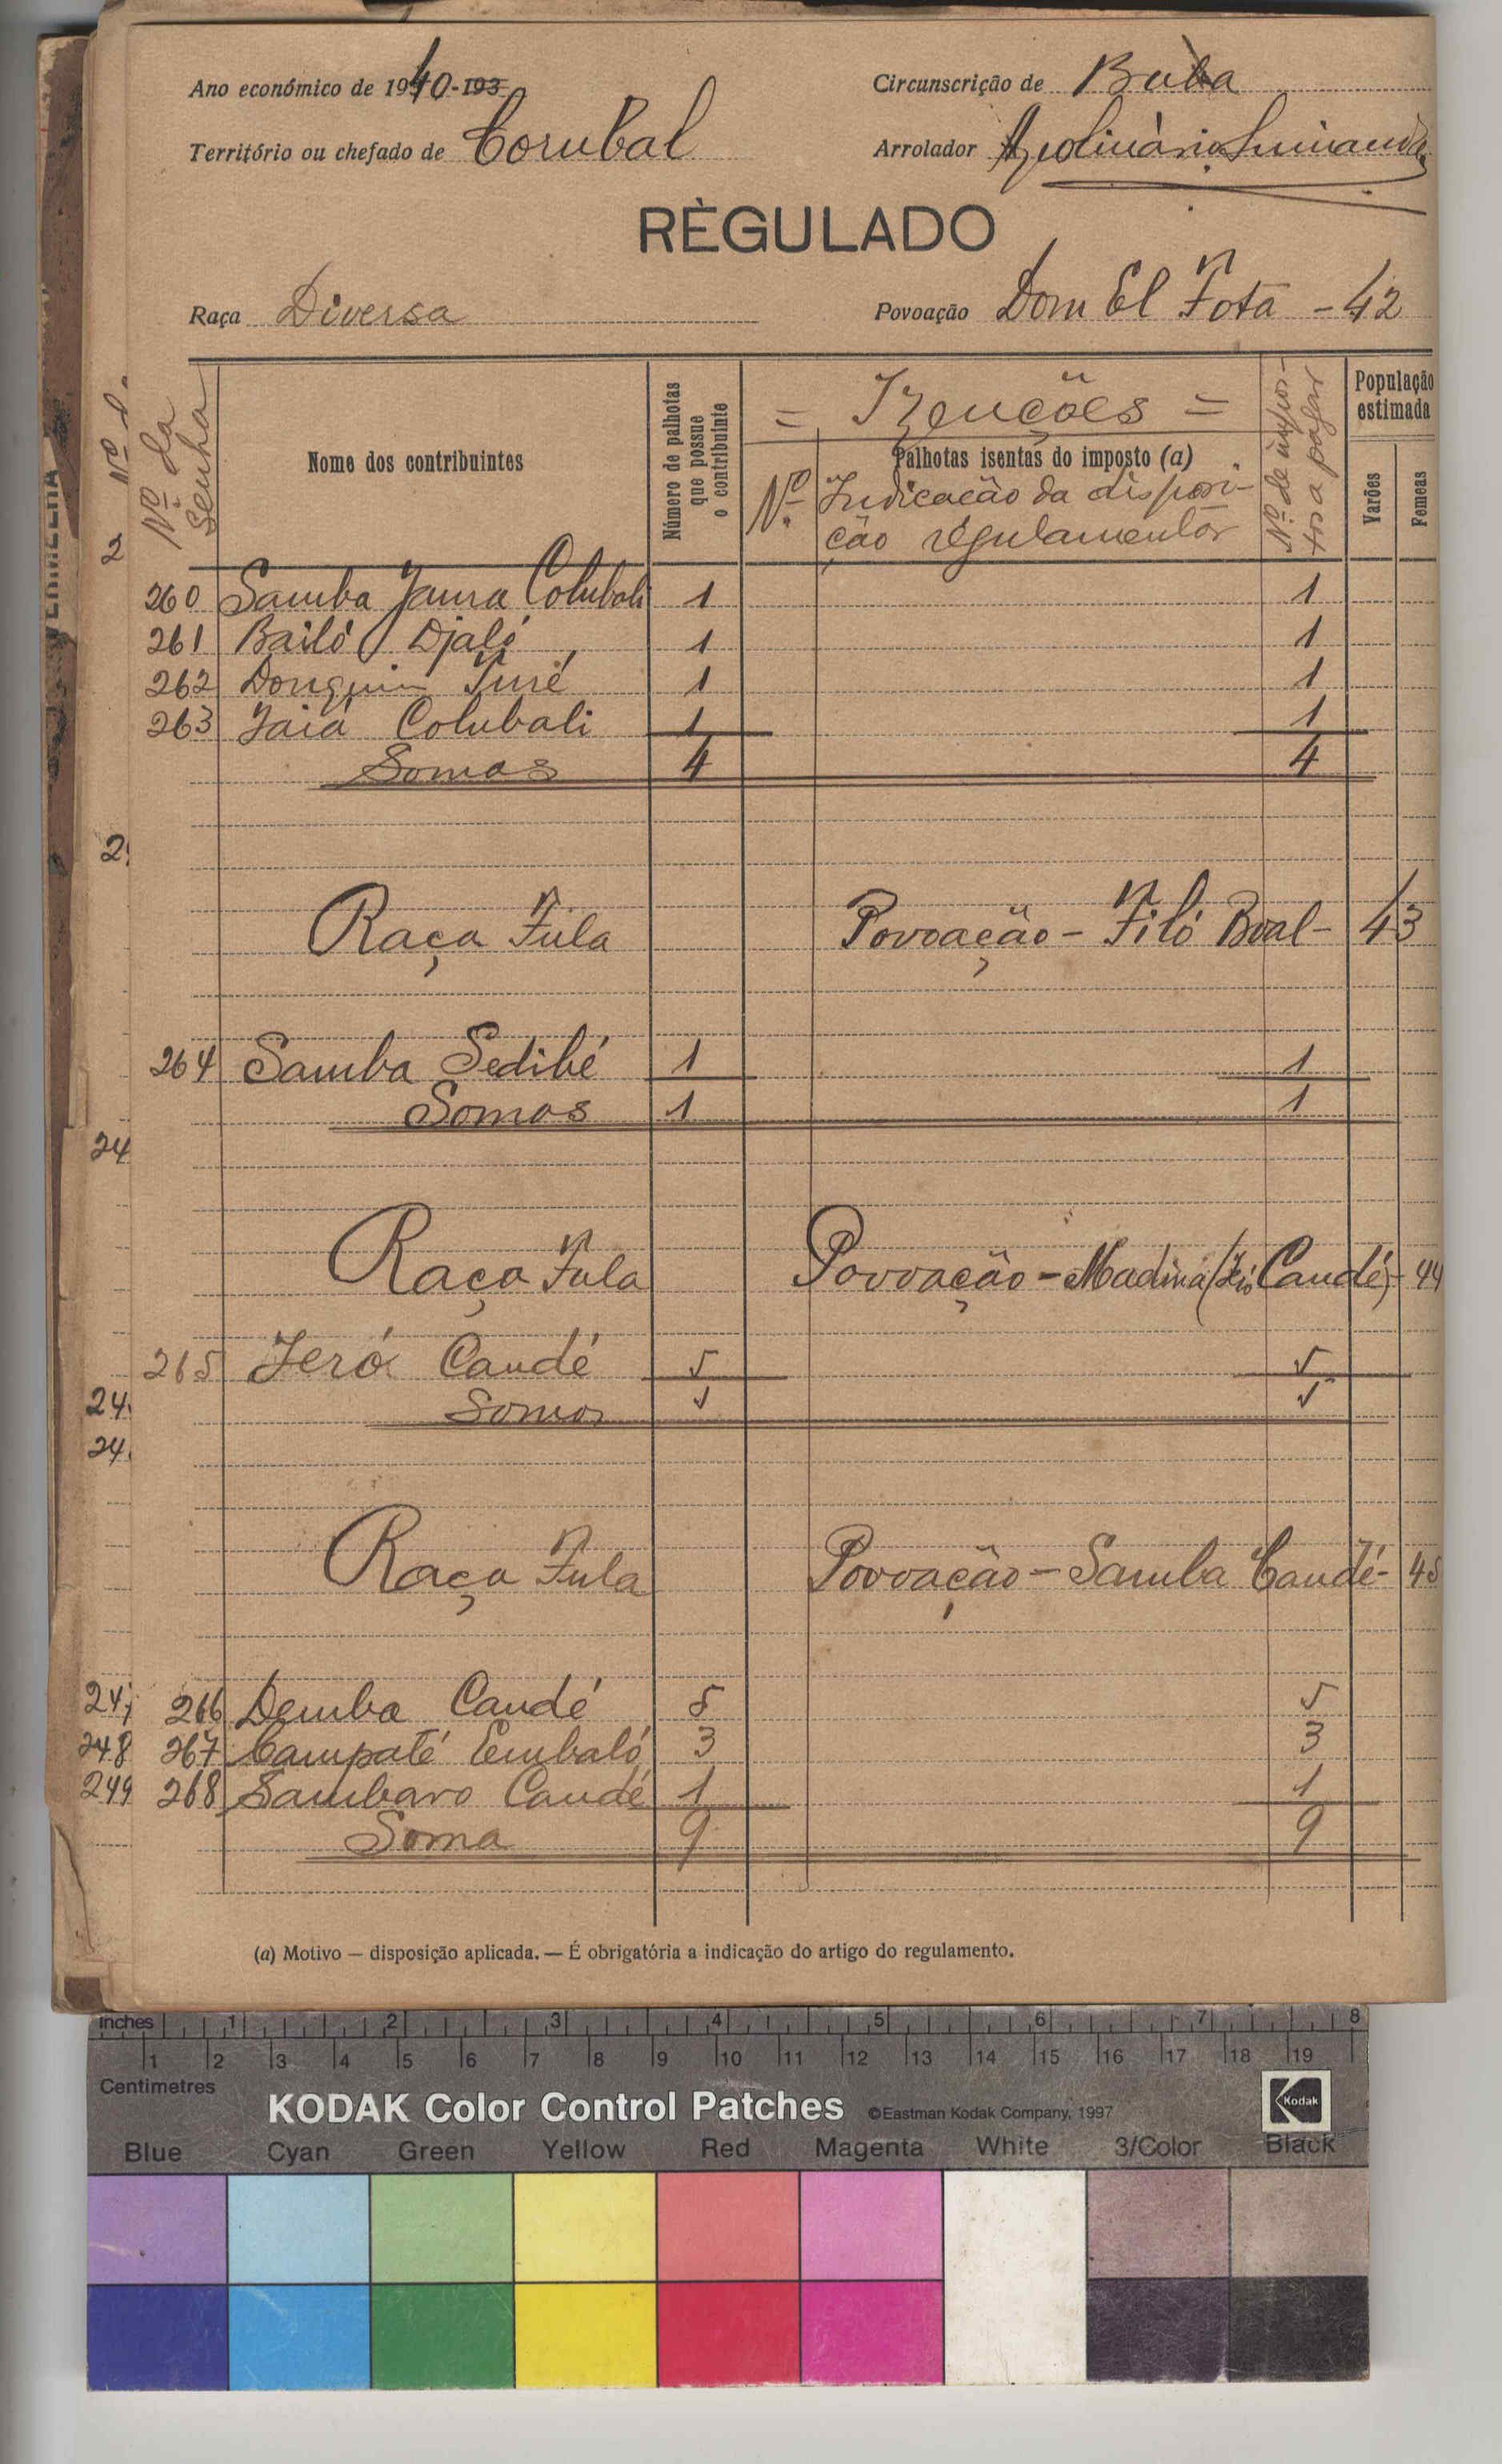 Ano económico de 1940-193
Circunscrição de Buba
Território ou chefado de Corubal
Arrolador
RÈGULADO
Raça Diversa
Povoação Dom El Fota - 42
Nº da Senha
Nome dos contribuintes
Número de palhotas que possue o contribuinte
= Izenções =
Palhotas isentas do imposto (a)
Nº Indicacão da disposi-
ção regulamentar
Nº de impos-
tos a pagar
População estimada
Varões
Femeas
260 Samba Jaura Colubali 1 1
261 Bailó Djaló 1 1
262 Turé 1 1
263 Jaiá Colubali 1 1
Somas 4 4
Raça Fula Povoação - Filó Boal - 43
264 Samba Sedibé 1 1
Somas 1 1
Raça Fula Povoação - Madina ( Candé) - 44
265 Jeró Candé 5 5
Somas 5 5
Raça Fula Povoação - Samba Candé - 45
247 266 Demba Candé 5 5
248 267 Campaté Embaló 3 3
249 268 Sambaro Candé 1 1
Soma 9 9
(a) Motivo — disposição aplicada. — É obrigatória a indicação do artigo do regulamento.
inches 1 2 3 4 5 6 7 8
1 2 3 4 5 6 7 8 9 10 11 12 13 14 15 16 17 18 19
Centimetres
KODAK Color Control Patches ©Eastman Kodak Company, 1997 Kodak
Blue Cyan Green Yellow Red Magenta White 3/Color Black